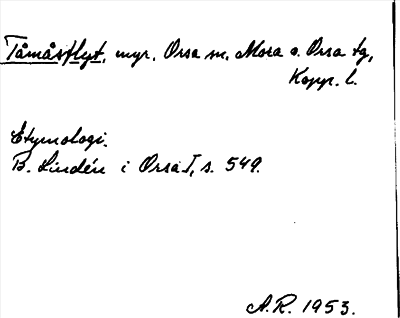 Tåmåsflyt, myr. Orsa sn, Mora o. Orsa tg,
Kopp. l.
Etymologi.
B. Lindén i Orsa I, s. 549.
A.R. 1953.